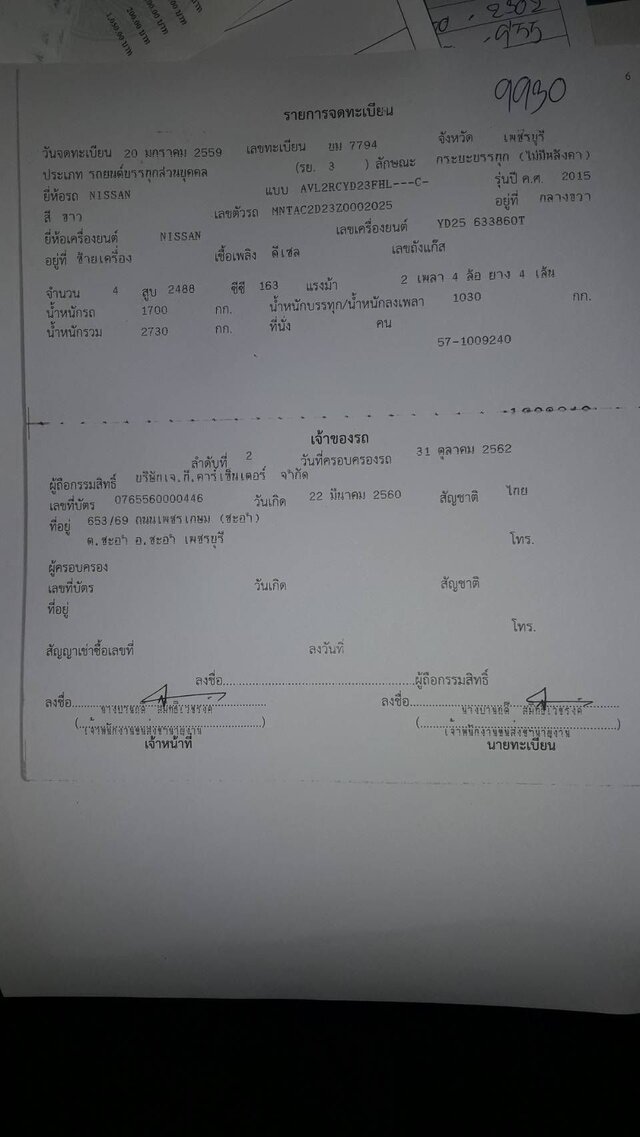 200.00 บาท
1,050.00 บาท
2302
955
9930
6
รายการจดทะเบียน
วันจดทะเบียน 20 มกราคม 2559 เลขทะเบียน ขม 7794 จังหวัด เพชรบุรี
ประเภท รถยนต์บรรทุกส่วนบุคคล (รย. 3 ) ลักษณะ กระบะบรรทุก (ไม่มีหลังคา)
ยี่ห้อรถ NISSAN แบบ AVL2RCYD23FHL---C- รุ่นปี ค.ศ. 2015
สี ขาว เลขตัวรถ MNTAC2D23Z0002025 อยู่ที่ กลางขวา
ยี่ห้อเครื่องยนต์ NISSAN เลขเครื่องยนต์ YD25 633860T
อยู่ที่ ซ้ายเครื่อง เชื้อเพลิง ดีเซล เลขถังแก๊ส
จำนวน 4 สูบ 2488 ซีซี 163 แรงม้า 2 เพลา 4 ล้อ ยาง 4 เส้น
น้ำหนักรถ 1700 กก. น้ำหนักบรรทุก/น้ำหนักลงเพลา 1030 กก.
น้ำหนักรวม 2730 กก. ที่นั่ง คน
57-1009240
เจ้าของรถ
ลำดับที่ 2 วันที่ครอบครองรถ 31 ตุลาคม 2562
ผู้ถือกรรมสิทธิ์ บริษัทเจ.ที.คาร์เซ็นเตอร์ จำกัด
เลขที่บัตร 0765560000446 วันเกิด 22 มีนาคม 2560 สัญชาติ ไทย
ที่อยู่ 653/69 ถนนเพชรเกษม (ชะอำ)
ต.ชะอำ อ.ชะอำ เพชรบุรี โทร.
ผู้ครอบครอง
เลขที่บัตร วันเกิด สัญชาติ
ที่อยู่
โทร.
สัญญาเช่าซื้อเลขที่ ลงวันที่
ลงชื่อ ผู้ถือกรรมสิทธิ์
ลงชื่อ ลงชื่อ
เจ้าพนักงานขนส่งชำนาญงาน เจ้าพนักงานขนส่งชำนาญงาน
เจ้าหน้าที่ นายทะเบียน